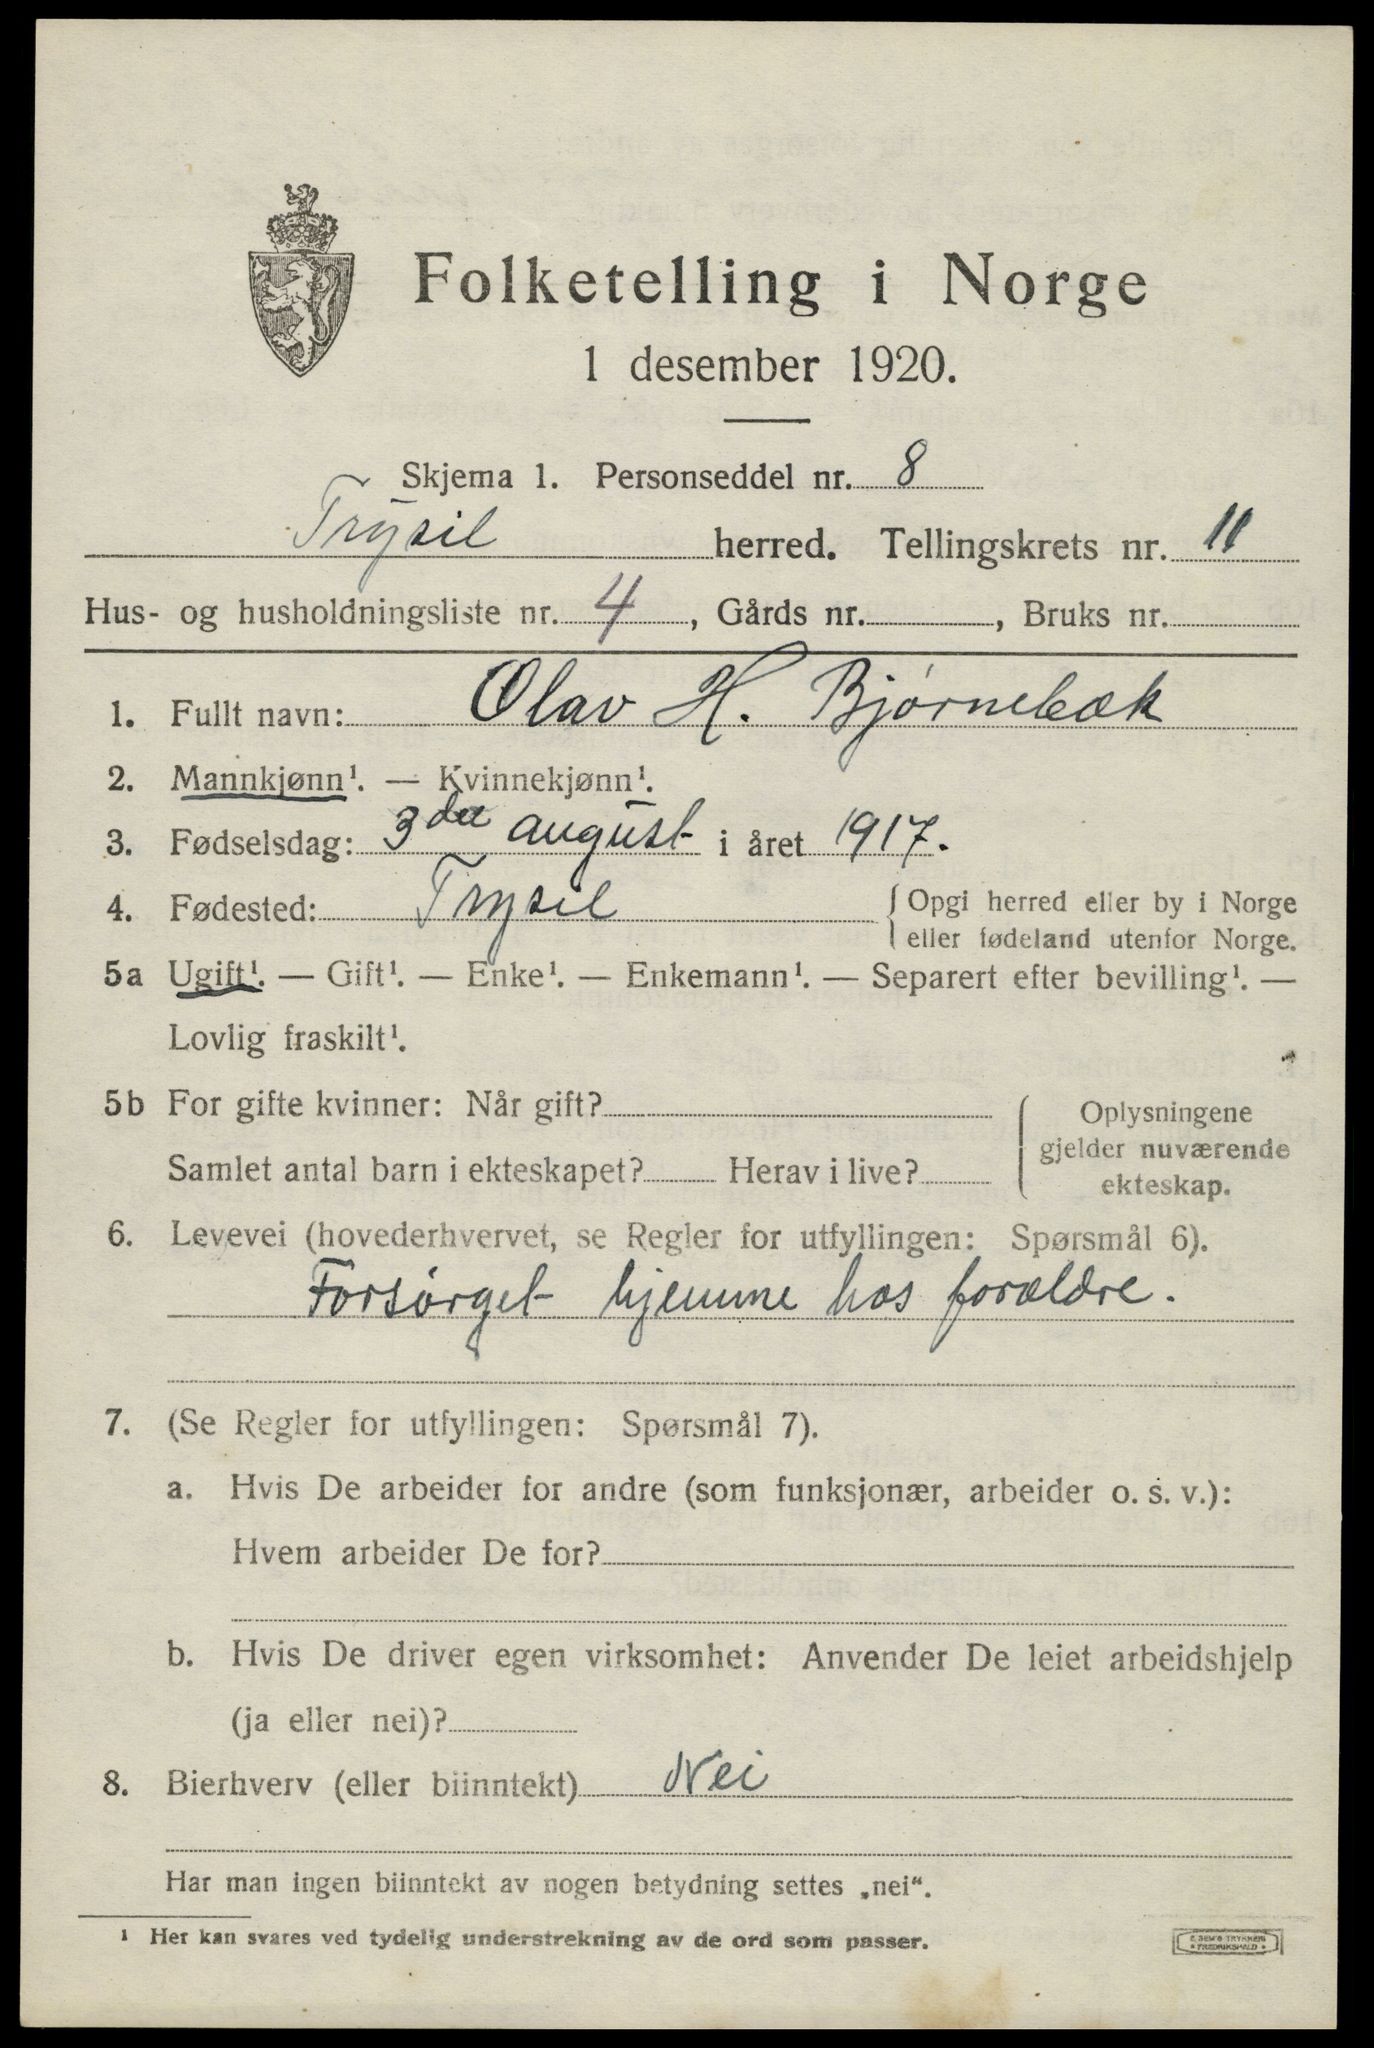 Folketelling i Norge
1 desember 1920.
Skjema 1. Personseddel nr. 8
Trysil herred. Tellingskrets nr. 11
Hus- og husholdningsliste nr. 4, Gårds nr. , Bruks nr.
1. Fullt navn: Olav H. Bjørnebæk
2. Mannkjønn¹. — Kvinnekjønn¹.
3. Fødselsdag: 3die august i året 1917.
4. Fødested: Trysil { Opgi herred eller by i Norge
eller fødeland utenfor Norge.
5a Ugift¹. — Gift¹. — Enke¹. — Enkemann¹. — Separert efter bevilling¹. —
Lovlig fraskilt¹.
5b For gifte kvinner: Når gift? Oplysningene
gjelder nuværende
Samlet antal barn i ekteskapet? Herav i live? ekteskap.
6. Levevei (hovederhvervet, se Regler for utfyllingen: Spørsmål 6).
Forsørget hjemme hos forældre.
7. (Se Regler for utfyllingen: Spørsmål 7).
a. Hvis De arbeider for andre (som funksjonær, arbeider o. s. v.):
Hvem arbeider De for?
b. Hvis De driver egen virksomhet: Anvender De leiet arbeidshjelp
(ja eller nei)?
8. Bierhverv (eller biinntekt) Nei
Har man ingen biinntekt av nogen betydning settes „nei“.
¹ Her kan svares ved tydelig understrekning av de ord som passer.
E. SEM'S TRYKKERI
FREDRIKSHALD